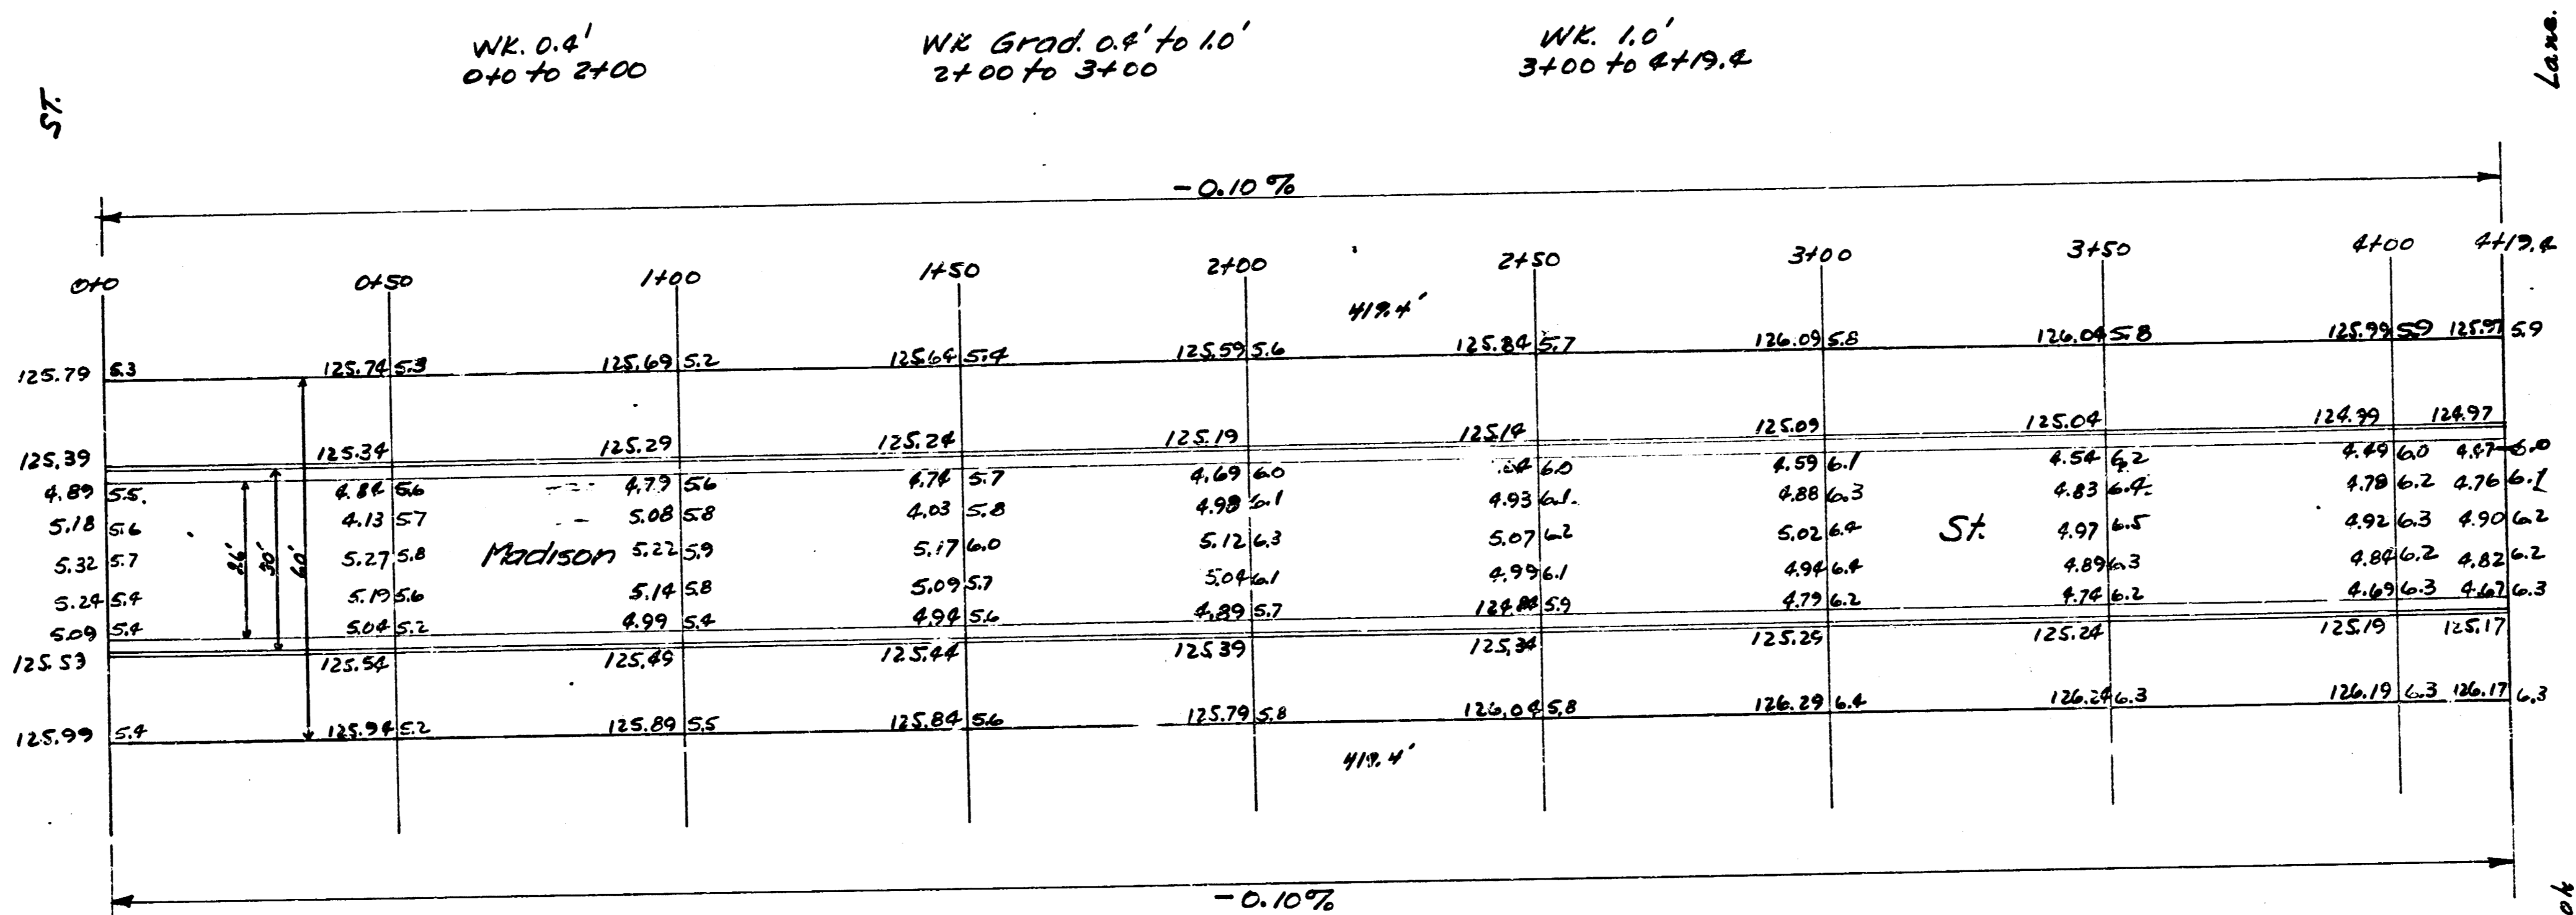 WK. 0.4' WK Grad. 0.4' to 1.0' WK. 1.0' Lane.
0+0 to 2+00 2+00 to 3+00 3+00 to 4+19.4
ST.
-0.10%
0+0 0+50 1+00 1+50 2+00 2+50 3+00 3+50 4+00 4+19.4
419.4'
125.79 5.3 125.74 5.3 125.69 5.2 125.64 5.4 125.59 5.6 125.84 5.7 126.09 5.8 126.04 5.8 125.99 5.9 125.97 5.9
125.39 125.34 125.29 125.24 125.19 125.14 125.09 125.04 124.99 124.97
4.89 5.5. 4.84 5.6 4.79 5.6 4.74 5.7 4.69 6.0 6.0 4.59 6.1 4.54 6.2 4.49 6.0 4.47 6.0
5.18 5.6 4.13 5.7 5.08 5.8 4.03 5.8 4.98 6.1 4.93 6.1. 4.88 6.3 4.83 6.4. 4.78 6.2 4.76 6.1
5.32 5.7 26' 30' 60' 5.27 5.8 Madison 5.22 5.9 5.17 6.0 5.12 6.3 5.07 6.2 5.02 6.4 St. 4.97 6.5 4.92 6.3 4.90 6.2
5.24 5.4 5.19 5.6 5.14 5.8 5.09 5.7 5.04 6.1 4.99 6.1 4.94 6.4 4.89 6.3 4.84 6.2 4.82 6.2
5.09 5.4 5.04 5.2 4.99 5.4 4.94 5.6 4.89 5.7 124.84 5.9 4.79 6.2 4.74 6.2 4.69 6.3 4.67 6.3
125.53 125.54 125.49 125.44 125.39 125.34 125.29 125.24 125.19 125.17
125.99 5.4 125.94 5.2 125.89 5.5 125.84 5.6 125.79 5.8 126.04 5.8 126.29 6.4 126.24 6.3 126.19 6.3 126.17 6.3
419.4'
-0.10%
ok